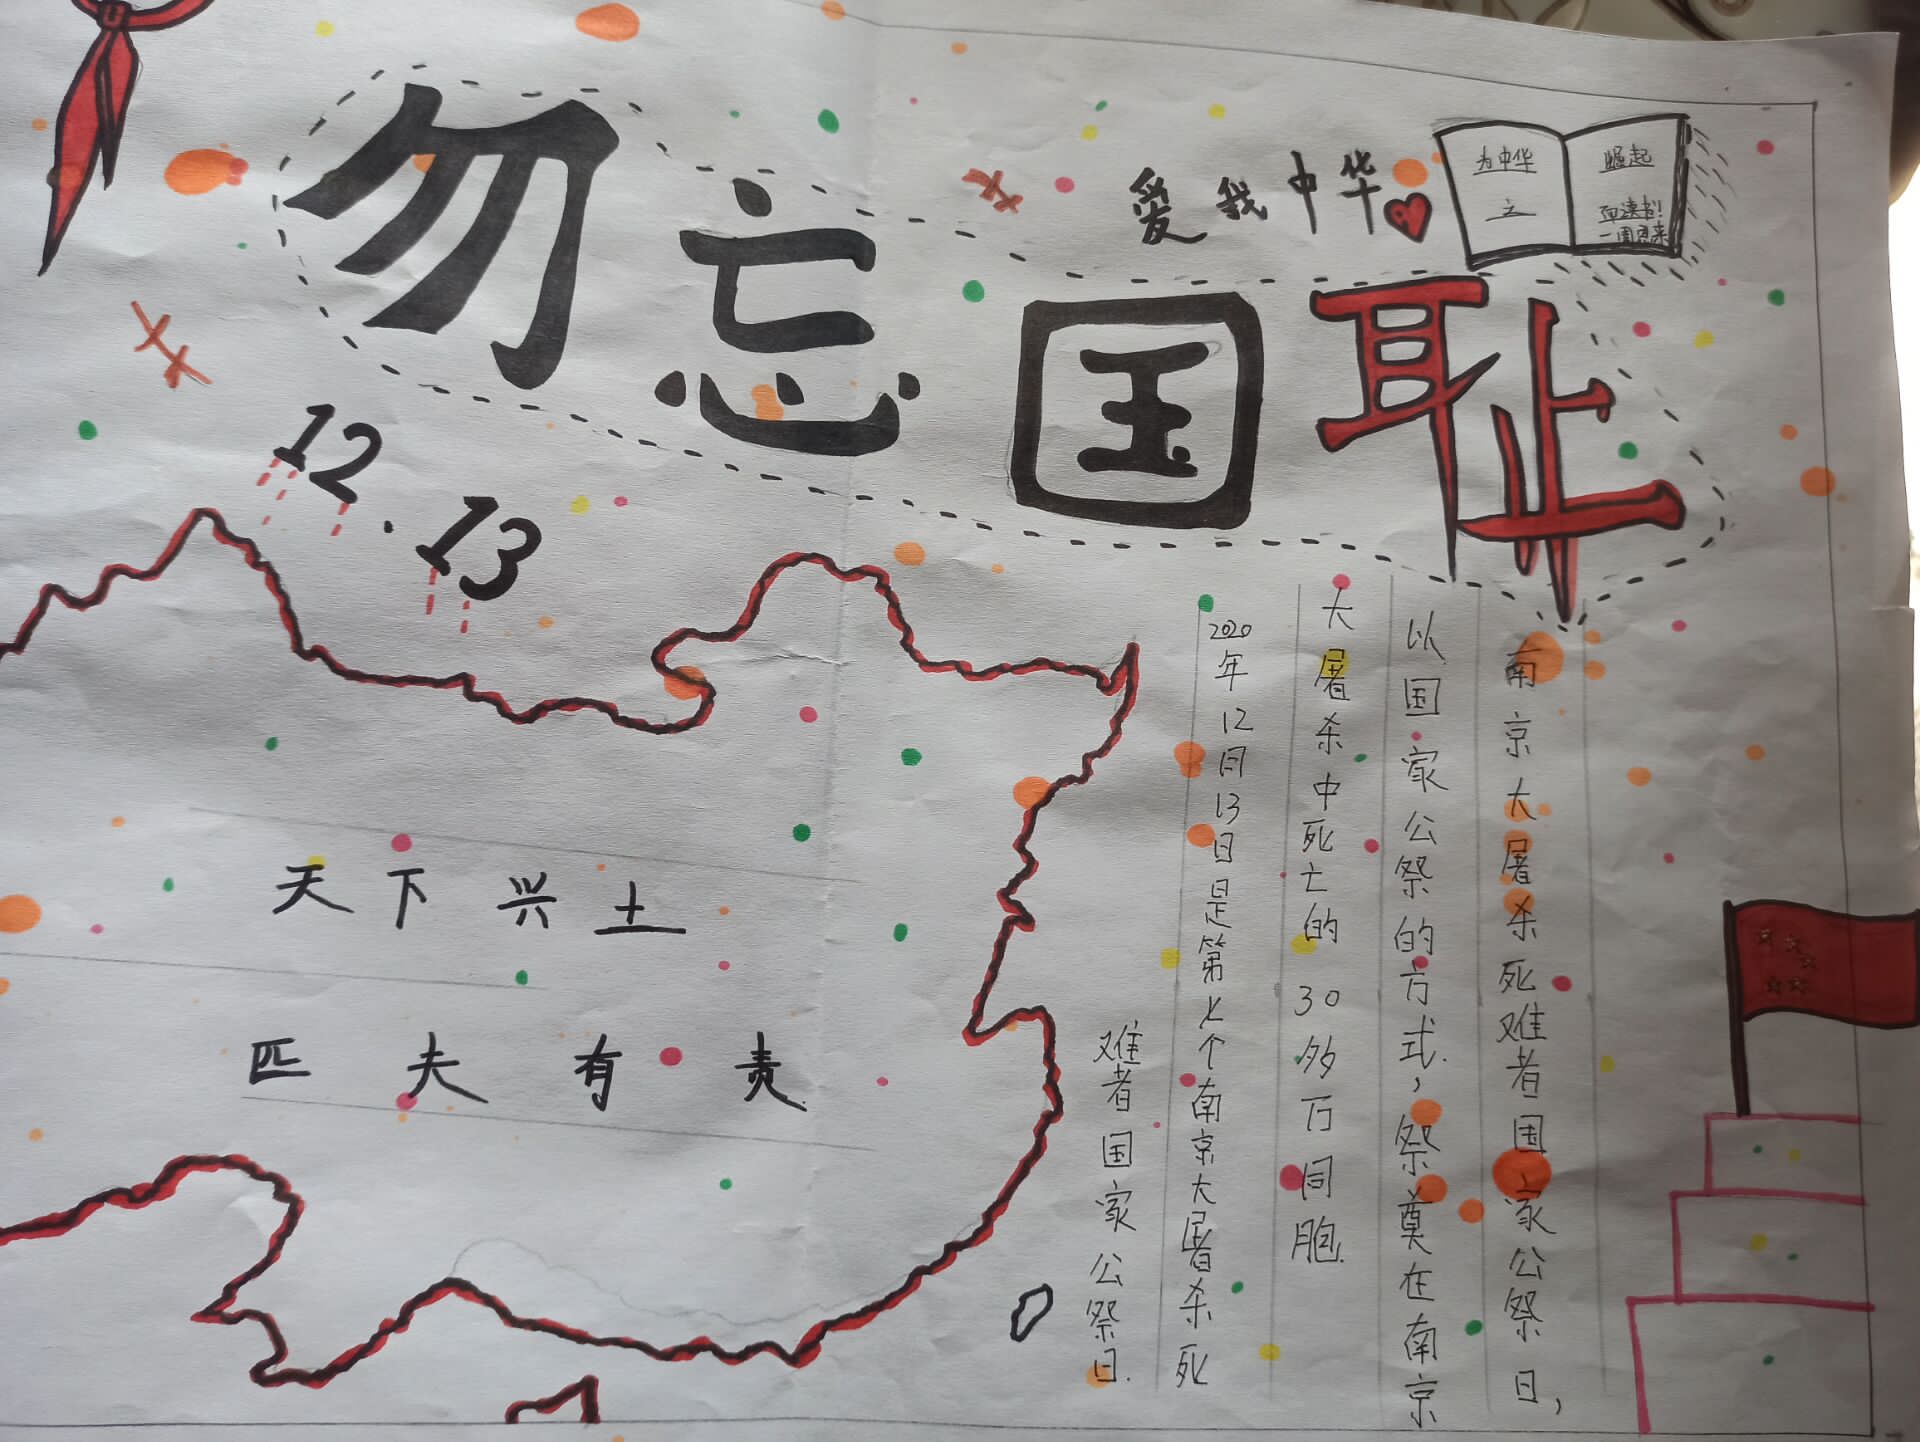 勿忘国耻
爱我中华
为中华
之
崛起
而读书!
一周恩来
12.13
天下兴土
匹夫有责
南京大屠杀死难者国家公祭日,
以国家公祭的方式,祭奠在南京
大屠杀中死亡的30多万同胞.
2020年12月13日是第七个南京大屠杀死
难者国家公祭日.